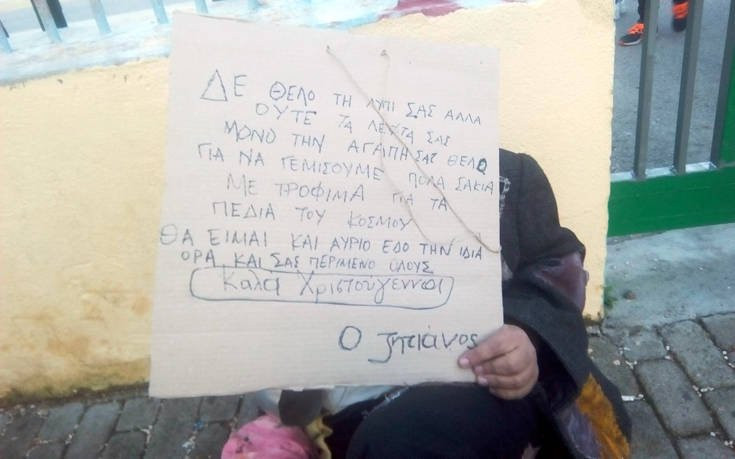 ΔΕ ΘΕΛΟ ΤΗ ΛΥΠΙ ΣΑΣ ΑΛΛΑ
ΟΥΤΕ ΤΑ ΛΕΥΤΑ ΣΑΣ
ΜΟΝΟ ΤΗΝ ΑΓΑΠΗ ΣΑΣ ΘΕΛΩ
ΓΙΑ ΝΑ ΓΕΜΙΣΟΥΜΕ ΠΟΛΑ ΣΑΚΙΑ
ΜΕ ΤΡΟΦΙΜΑ ΓΙΑ ΤΑ
ΠΕΔΙΑ ΤΟΥ ΚΟΣΜΟΥ
ΘΑ ΕΙΜΑΙ ΚΑΙ ΑΥΡΙΟ ΕΔΟ ΤΗΝ ΙΔΙΑ
ΟΡΑ ΚΑΙ ΣΑΣ ΠΕΡΙΜΕΝΟ ΟΛΟΥΣ
Καλά Χριστούγεννα
Ο ζητιάνος